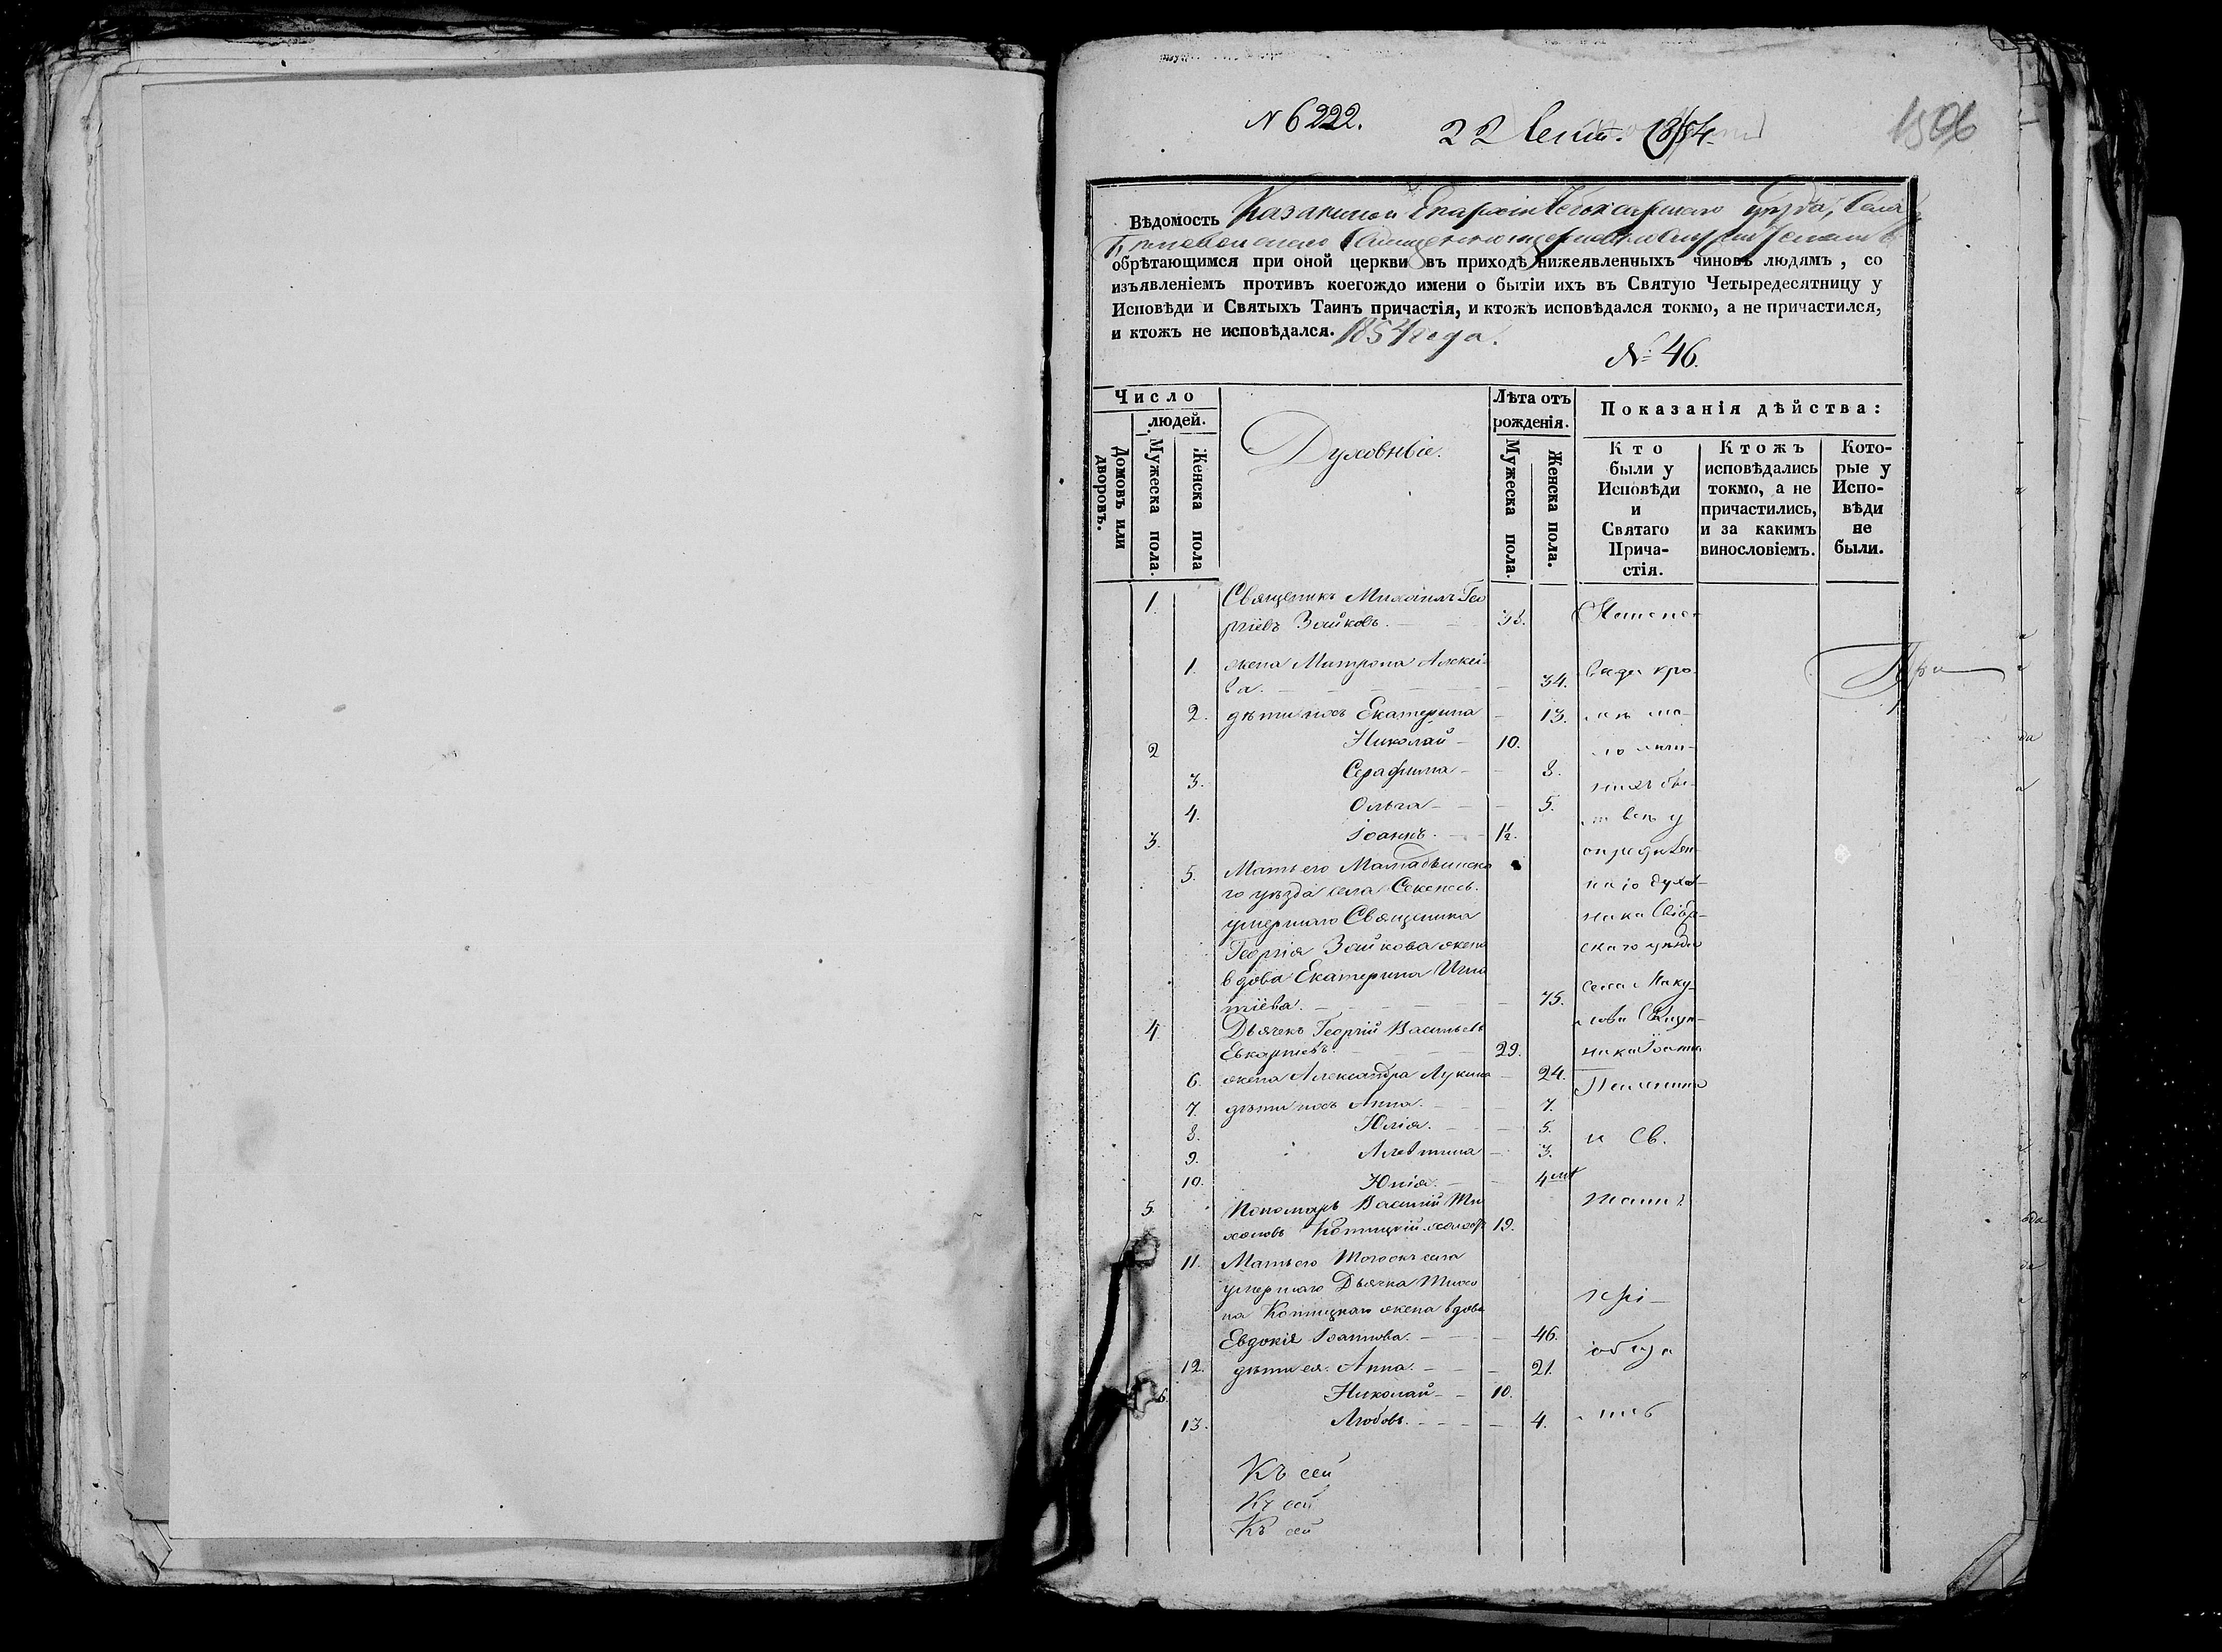 N 6222.
22 Сент. 1854.
1506
Вѣдомость Казанской Епархіи Чебоксарскаго уѣзда, Села
обрѣтающимся при оной церкви въ приходѣ нижеявленныхъ чиновъ людямъ, со
изъявленіемъ противъ коегождо имени о бытіи ихъ въ Святую Четыредесятницу у
Исповѣди и Святыхъ Таинъ причастія, и ктожъ исповѣдался токмо, а не причастился,
и ктожъ не исповѣдался. 1854 года.
№ 46.
Число
людей.
Домовъ или дворовъ.
Мужеска пола.
Женска пола
Духовные.
Лѣта отъ
рожденія.
Мужеска пола.
Женска пола.
Показанія дѣйства:
Кто
были у
Исповѣди
и
Святаго
Прича-
стія.
Ктожъ
исповѣдались
токмо, а не
причастились,
и за какимъ
винословіемъ.
Кото-
рые у
Испо-
вѣди
не
были.
1. Священикъ Михаилъ Гео
ргіевъ Зайковъ.
1. жена Матрона Алексѣ
ва. 34.
2. дѣти ихъ Екатерина 13.
2 Николай 10.
3. Серафима 8.
4. Ольга 5.
3. Іоаннъ. 1½.
5. Мать его Мамадышска
го уѣзда села Секенесь
умершаго Священика
Георгія Зайкова жена
вдова Екатерина Игна
тіева. 75.
4 Дьячекъ Георгій Васильевъ
29.
6. жена Александра Лукина 24.
7. дѣти ихъ Анна. 7.
8. Юлія. 5.
9. Алевтина 3.
10. Юнія. 4 мѣ
5 Пономарь Василій Ти
хоновъ холостъ 19.
11. Мать его Тогожъ села
умершаго Дьячка Тихо
на жена вдова
Евдокія Іоаннова. 46.
12. дѣти ея: Анна. 21.
6. Николай 10.
13. Любовь. 4.
Къ сей
Къ сей
Къ сей
опредѣлен
наго духов
ника Свіяж
скаго уѣзда
села Маку
лова Священ
ника Іоанна
и Св.
Таинъ
при
общa
лись
При